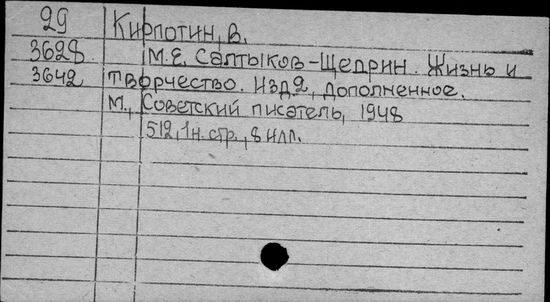 29 Кирпотин, В.
3628 М.Е. Салтыков-Щедрин. Жизнь и
3642 творчество. Изд.2, дополненное.
М., Советский писатель, 1948
512, 1н. стр., 8 илл.